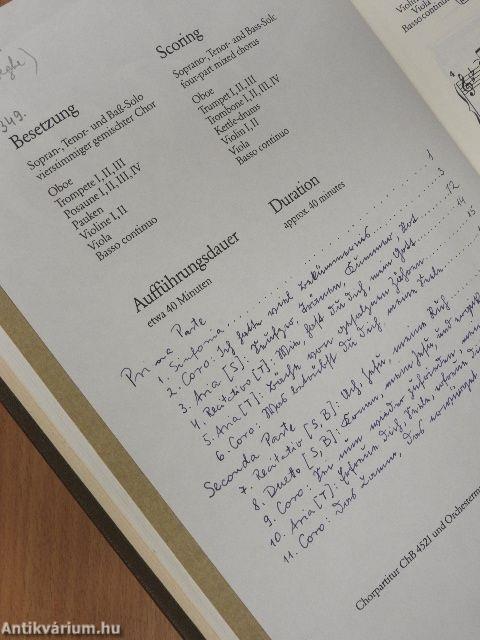 eghe)
349.
Besetzung
Sopran-, Tenor- und Baß-Solo
vierstimmiger gemischter Chor
Oboe
Trompete I, II, III
Posaune I, II, III, IV
Pauken
Violine I, II
Viola
Basso continuo
Scoring
Soprano-, Tenor- and Bass-Solo
four-part mixed chorus
Oboe
Trumpet I, II, III
Trombone I, II, III, IV
Kettle-drums
Violin I, II
Viola
Basso continuo
Violin
Viola
Basso conti
Aufführungsdauer
etwa 40 Minuten
Duration
approx. 40 minutes
Prima Parte
1. Sinfonia 1
2. Coro: Ich hatte viel Bekümmernis 3
3. Aria [S]: Seufzer, Tränen, Kummer, Not 12
4. Recitativo [T]: Wie, hast du dich, mein Gott 14
5. Aria [T]: Bäche von gesalznen Zähren 15
6. Coro: Was betrübst du dich, meine Seele
Seconda Parte
7. Recitativo [S, B]: Ach Jesu, meine Ruh
8. Duetto [S, B]: Komm, mein Jesu, und
9. Coro: Sei nun wieder zufrieden, meine
10. Aria [T]: Erfreue dich, Seele, erfreue dich
11. Coro: Das Lamm, das erwürget
Chorpartitur ChB 4521 und Orchesterm
Antikvárium.hu